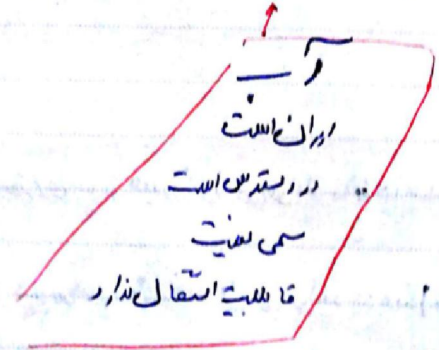 آب
ارزان است
در دسترس است
سمی نیست
قابلیت اشتعال ندارد